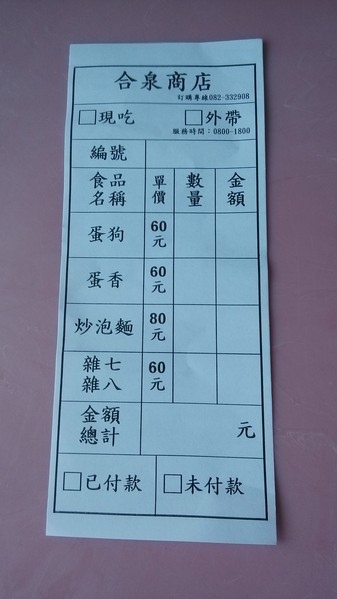 合泉商店
訂購專線082-332908
□現吃 □外帶
服務時間：0800-1800
編號
食品名稱 單價 數量 金額
蛋狗 60元
蛋香 60元
炒泡麵 80元
雜七雜八 60元
金額總計 元
□已付款 □未付款